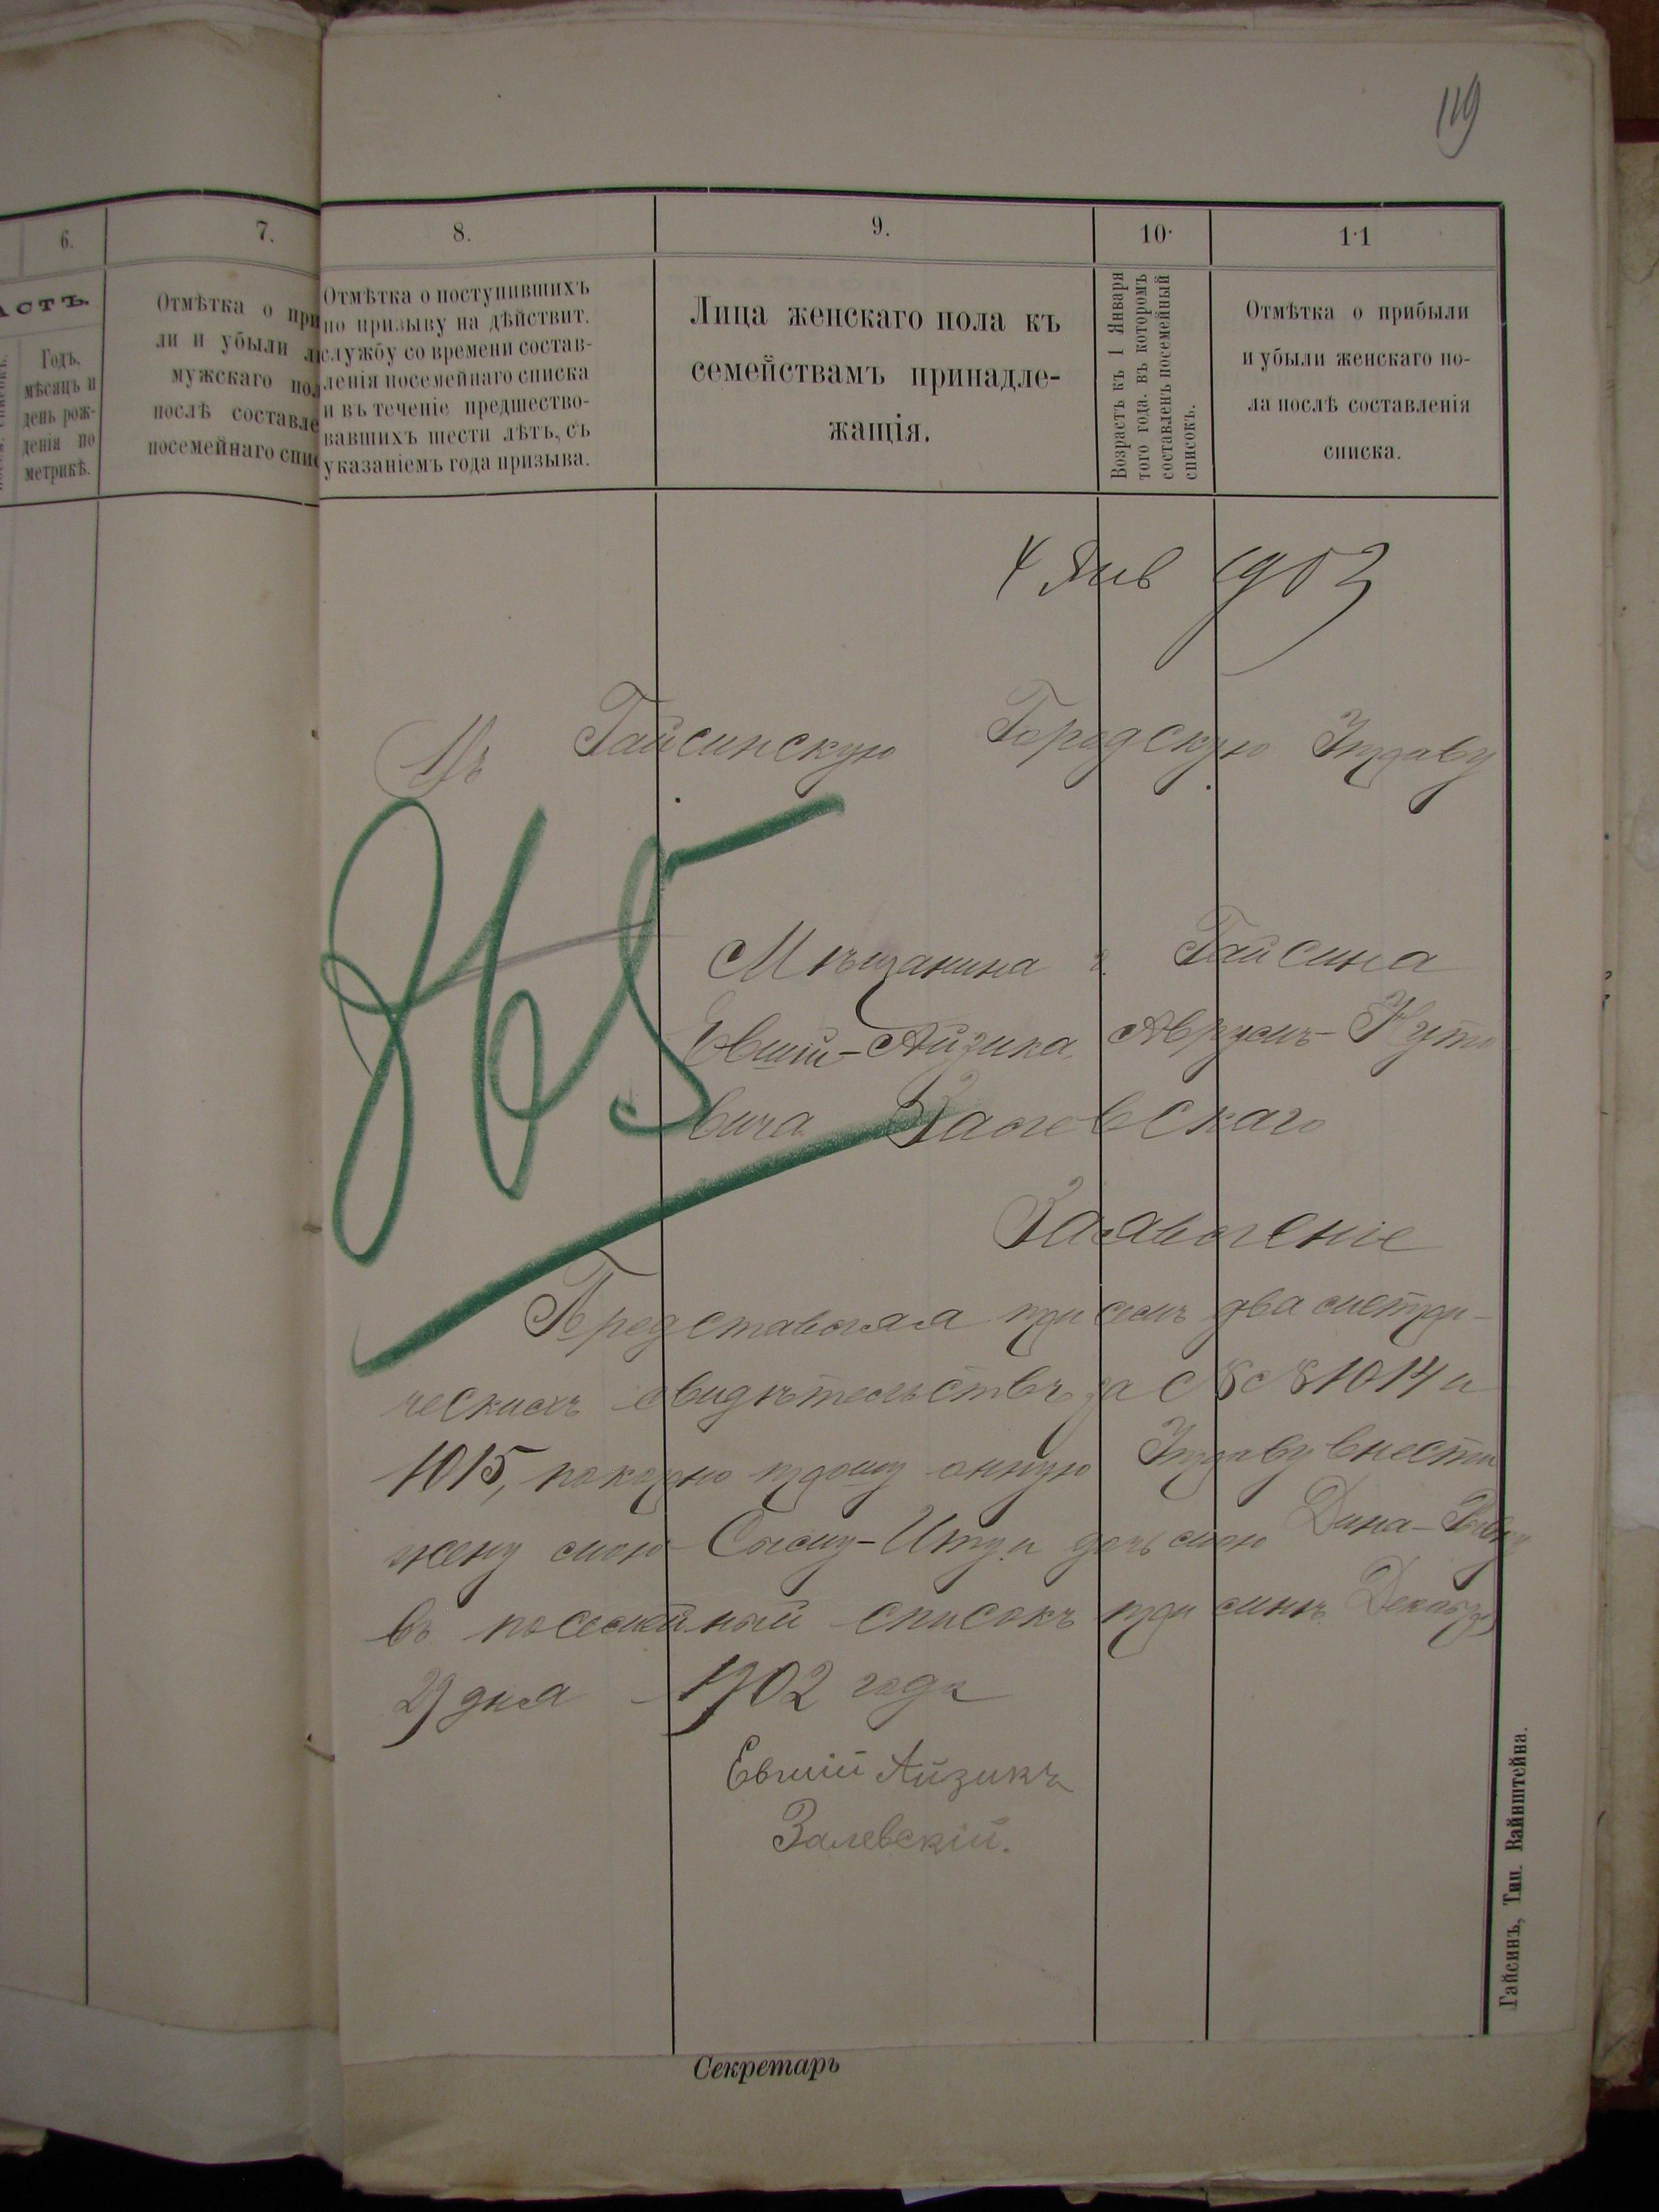 119
6.
7.
8.
9.
10.
11
АСТЬ.
Годъ,
мѣсяцъ и
день рож-
денія по
метрикѣ.
Отмѣтка о при
ли и убыли
мужскаго пол
послѣ составле
посемейнаго спис
Отмѣтка о поступившихъ
по призыву на дѣйствит.
службу со времени состав-
ленія посемейнаго списка
и въ теченіе предшество-
вавшихъ шести лѣтъ, съ
указаніемъ года призыва.
Лица женскаго пола къ
семействамъ принадле-
жащія.
Возрастъ къ 1 Января
того года. въ которомъ
составленъ посемейный
списокъ.
Отмѣтка о прибыли
и убыли женскаго по-
ла послѣ составленія
списка.
4 Янв 1903
Въ Гайсинскую Городскую Управу
365
Мѣщанина г. Гайсина
Евшій-Айзика Аврумъ-
вича Залевскаго
Заявленіе
Представляя при семъ два метри-
ческихъ свидѣтельствъ за №№ 1014 и
1015, покорно прошу онную Управу внести
жену мою и дочь мою Дина-
въ посемейный списокъ при мнѣ. Декабря
29 дня 1902 года
Евшій Айзикъ
Залевскій.
Секретарь
Гайсинъ, Тип. Вайнштейна.